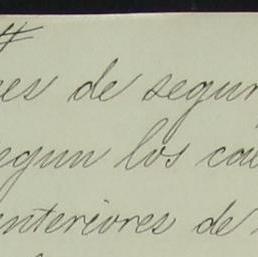 es de segur
egun los ca
anteriores de